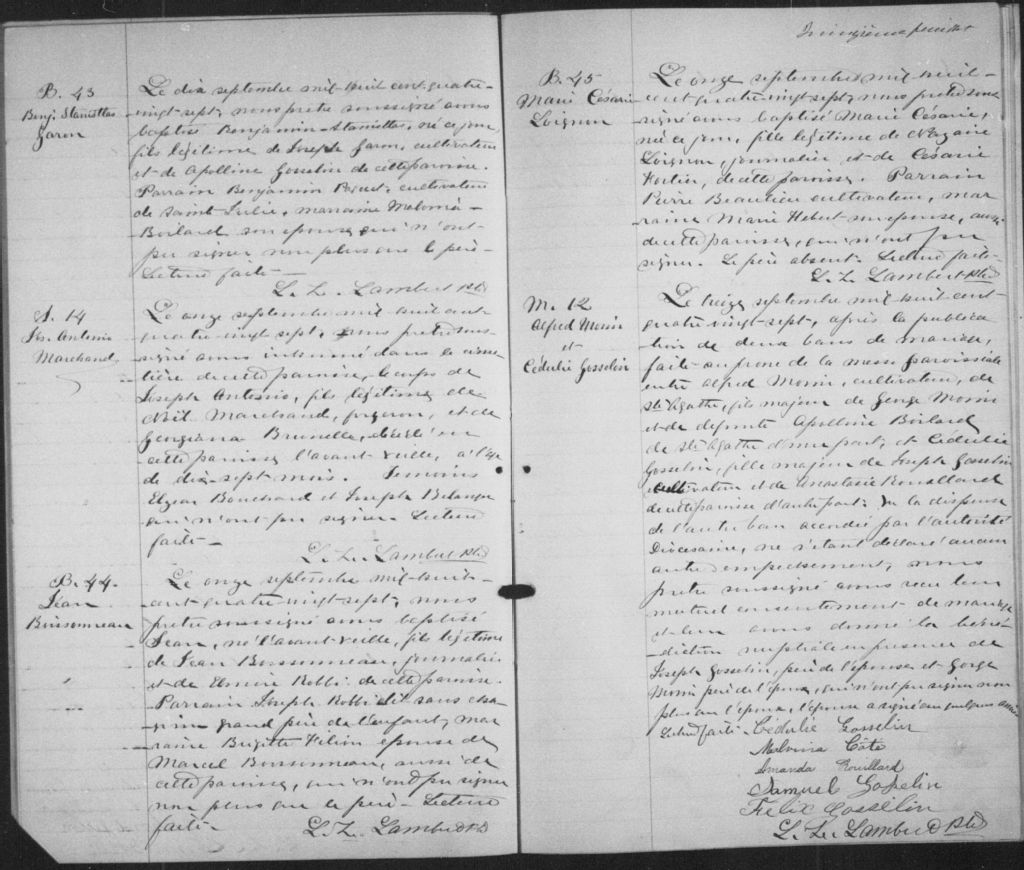 B. 43
Benj. Stanislas
Garon
Le dix septembre mil-huit cent-quatre-
vingt-sept, nous prêtre soussigné avons
baptisé Benjamin-Stanislas, né ce jour,
fils légitime de Joseph Garon, cultivateur
et de Apolline Gosselin de cette paroisse.
Parrain Benjamin Paquet, cultivateur
de Saint Julie, marraine
Boilard son épouse qui n'ont
pu signer non plus que le père-
Lecture faite-
L. Z. Lambert Ptre
S. 14
Jos. Antonio
Marchand
Le onze septembre mil huit cent
quatre vingt sept, nous prêtre sous-
signé avons inhumé dans le cime-
tière de cette paroisse, le corps de
Joseph Antonio, fils légitime de
Noël Marchand, forgeron, et de
Georgiana Brunelle, décédé en
cette paroisse l'avant-veille, à l'âge
de dix-sept mois. Témoins
Elzear Bouchard et Joseph Bélanger
qui n'ont pu signer. Lecture
faite-
L. Z. Lambert Ptre
B. 44.
Jean
Boissonneau
Le onze septembre mil-huit-
cent-quatre-vingt-sept, nous
prêtre soussigné avons baptisé
Jean, né l'avant-veille, fils légitime
de Jean Boissonneau, journalier
et de Elmire Robbi de cette paroisse.
Parrain Joseph Robbi dit sans cha-
grin grand père de l'enfant, mar-
raine Brigitte Filion épouse de
Marcel Boissonneau, aussi de
cette paroisse, qui n'ont pu signer
non plus que le père- Lecture
faite-
L. Z. Lambert Ptre
feuillet
B. 45
Marie Césarie
Loignon
Le onze septembre mil-huit-
cent-quatre-vingt sept, nous prêtre sous-
signé avons baptisé Marie Césarie,
née ce jour, fille légitime de Nazaire
Loignon, journalier et de Césarie
Fortier, de cette paroisse. Parrain
Pierre Beaulieu cultivateur, mar-
raine Marie Hebert son épouse, aussi
de cette paroisse, qui n'ont pu
signer. Le père absent. Lecture faite-
L. Z. Lambert Ptre
M. 12
Alfred Morin
et
Cédulie Gosselin
Le treize septembre mil huit cent-
quatre vingt-sept, après la publica
tion de deux bans de mariage,
faite au prone de la messe paroissiale
entre Alfred Morin, cultivateur, de
Ste Agathe, fils majeur de George Morin
et de defunte Apolline Boilard
de Ste Agathe d'une part; et Cédulie
Gosselin, fille majeure de Joseph Gosselin
cultivateur et de Anastasie Rouillard
de cette paroisse d'autre part; Vu la dispense
de l'autre ban accordée par l'autorité
Diocesaine, ne s'étant déclaré aucun
autre empêchement, nous
prêtre soussigné avons reçu leur
mutuel consentement de mariage
et leur avons donné la béné-
diction nuptiale en présence de
Joseph Gosselin, père de l'épouse et George
Morin père de l'époux, qui n'ont pu signer non
plus que l'époux, l'épouse a signé avec quelques amis
Lecture faite-
Cédulie Gosselin
Malvina Côté
Amanda Rouillard
Samuel Gosselin
Félix Gosselin
L. Z. Lambert Ptre